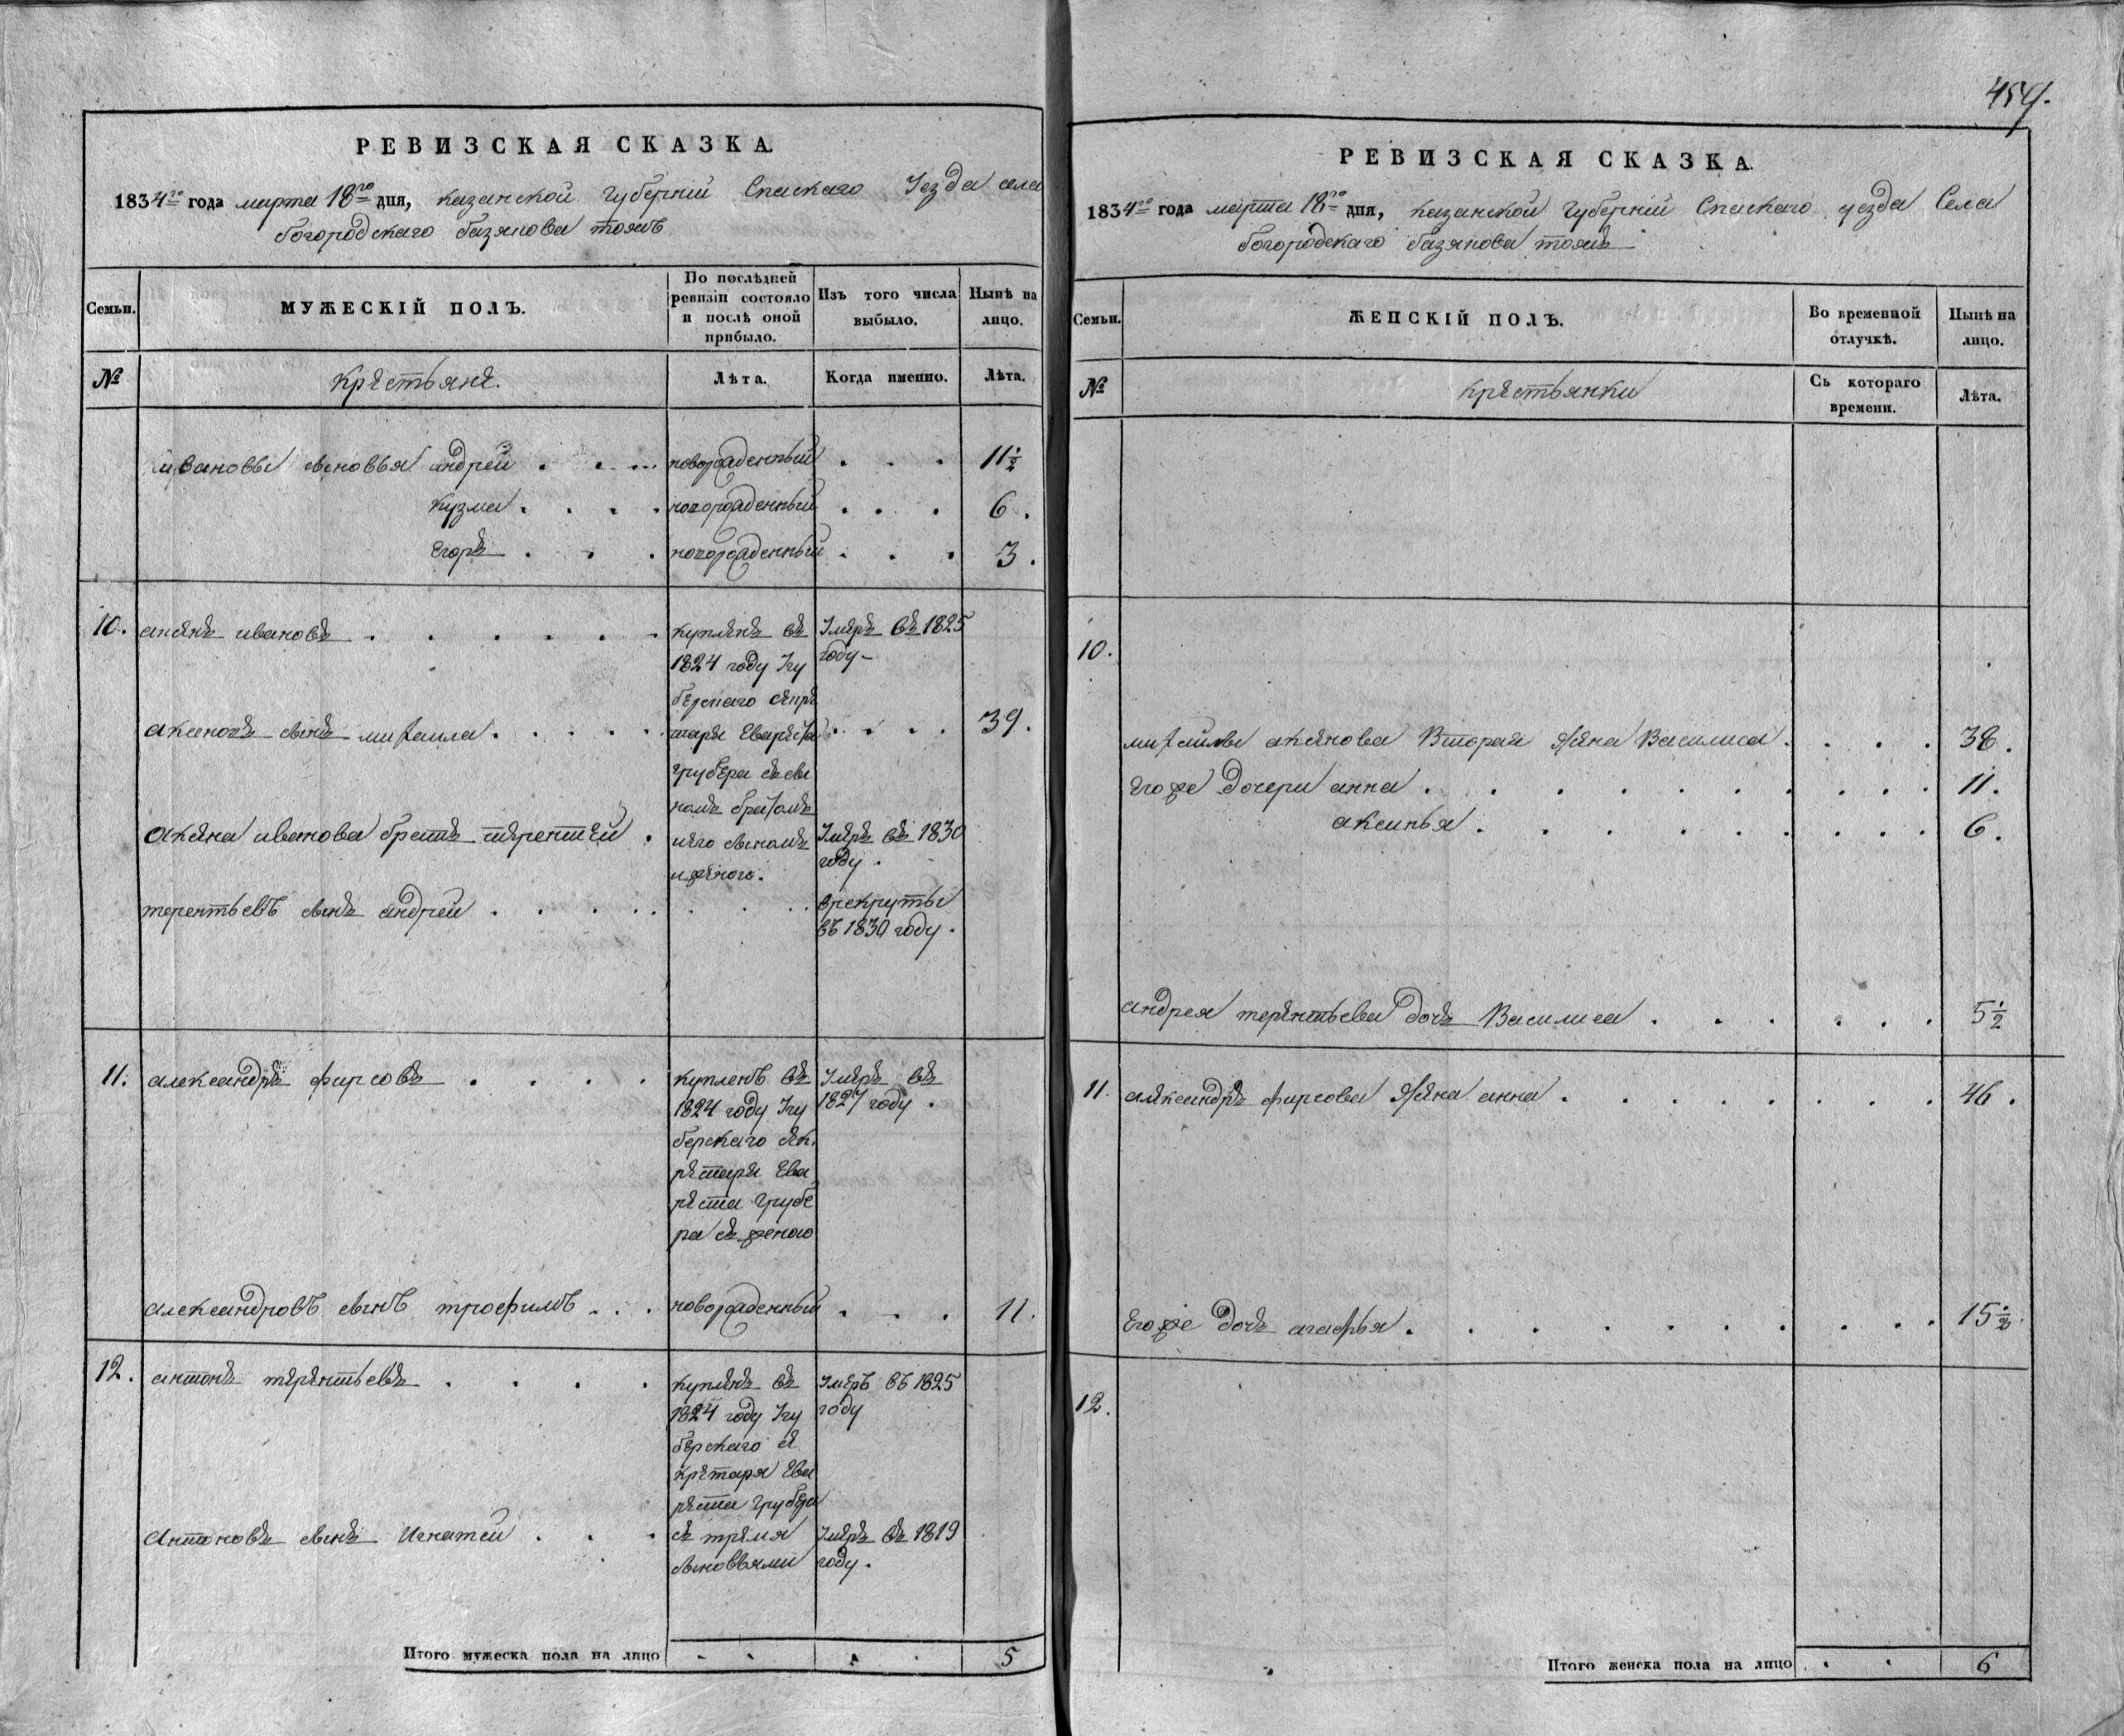 459.
РЕВИЗСКАЯ СКАЗКА.
1834го года марта 18го дня, казанской губерніи Спаскаго Уезда села
богородскаго базянова тожъ
Семьи.
МУЖЕСКІЙ ПОЛЪ.
По послѣдней
ревизіи состояло
и послѣ оной
прибыло.
Изъ того числа
выбыло.
Нынѣ на
лицо.
№
крестьяне.
Лѣта.
Когда именно.
Лѣта.
ивановы сыновья андрей новорожденный 11½
кузма новорожденный 6.
егоръ новорожденный 3.
10. ивановъ купленъ въ Умеръ въ 1825
1824 году Угу году
берскаго секре
сынъ михаила таря Евареста 39.
грубера съ сы
номъ братомъ
иванова братъ терентей иего сыномъ Умеръ въ 1830
иженою. году.
терентьевъ сынъ андрей врекруты
въ 1830 году.
11. александръ фирсовъ купленъ въ Умеръ въ
1824 году Угу 1827 году.
берскаго сек
ретаря Ева
реста грубе
ра съ женою
александровъ сынъ трофимъ новорожденный 11.
12. антонъ терентьевъ купленъ въ Умеръ въ 1825
1824 году Угу году
берскаго се
кретаря Ева
реста грубера
Антоновъ сынъ Игнатей съ тремя Умеръ въ 1819
сыновьями году.
Итого мужеска пола на лицо 5
РЕВИЗСКАЯ СКАЗКА.
1834го года марта 18го дня, казанской губерніи Спаскаго уезда Села
богородскаго базянова тожъ
Семьи.
ЖЕНСКІЙ ПОЛЪ.
Во временной
отлучкѣ.
Нынѣ на
лицо.
№
крестьянки
Съ котораго
времени.
Лѣта.
10.
михайлы Вторая жена Василиса 38.
егоже дочери анна 11.
аксинья 6.
андрея терентьева дочь Василиса 5½
11. александръ фирсова жена анна 46.
егоже дочь агафья 15½.
12.
Итого женска пола на лицо 6